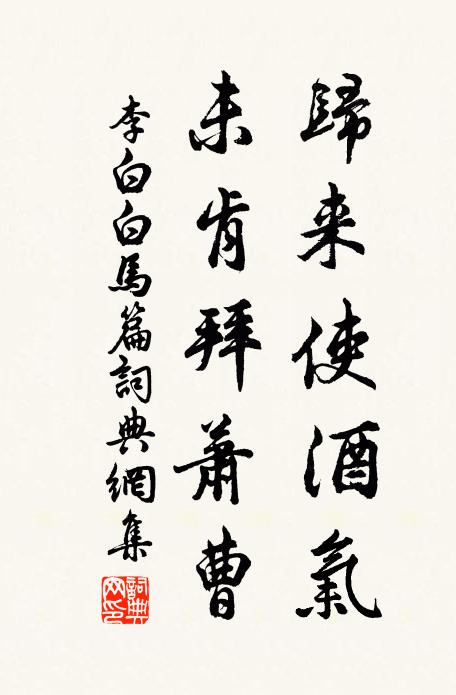 歸来使酒氣
未肯拜蕭曹
李白白馬篇詞典網集
詞典網印